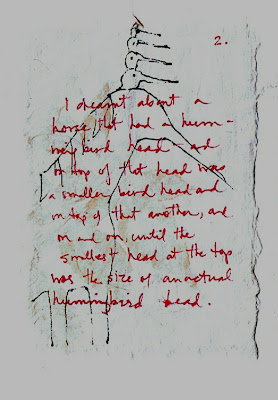 2.
I dreamt about a
horse that had a hum-
mingbird head and
on top of that head was
a smaller bird head and
on top of that another, and
on and on, until the
smallest head at the top
was the size of an actual
hummingbird head.